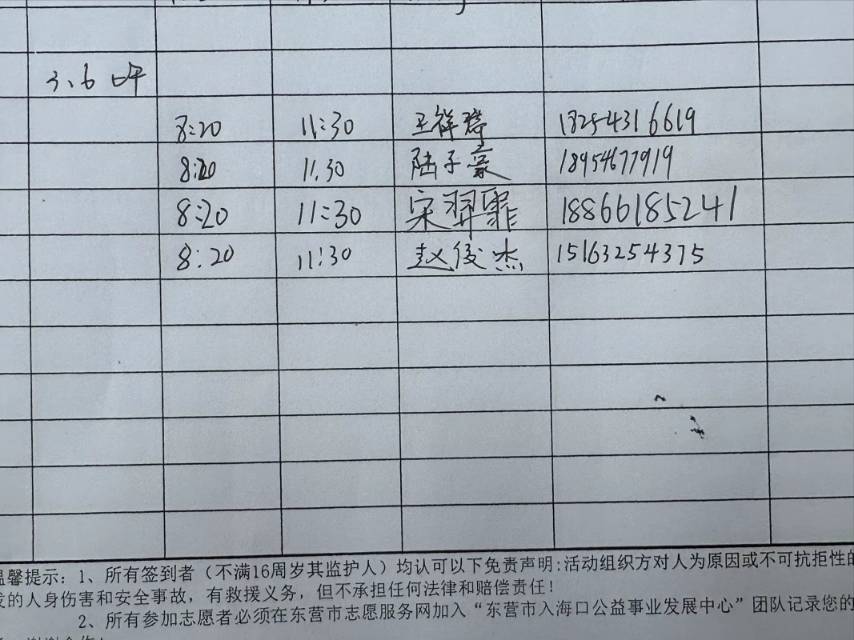 3.6 日午
8:20 11:30 王祥瑞 18254316619
8:20 11.30 陆子豪 18954677919
8:20 11:30 宋羿霏 18866185241
8:20 11:30 赵俊杰 15163254375
温馨提示：1、所有签到者（不满16周岁其监护人）均认可以下免责声明:活动组织方对人为原因或不可抗拒性的
发的人身伤害和安全事故，有救援义务，但不承担任何法律和赔偿责任！
2、所有参加志愿者必须在东营市志愿服务网加入“东营市入海口公益事业发展中心”团队记录您的